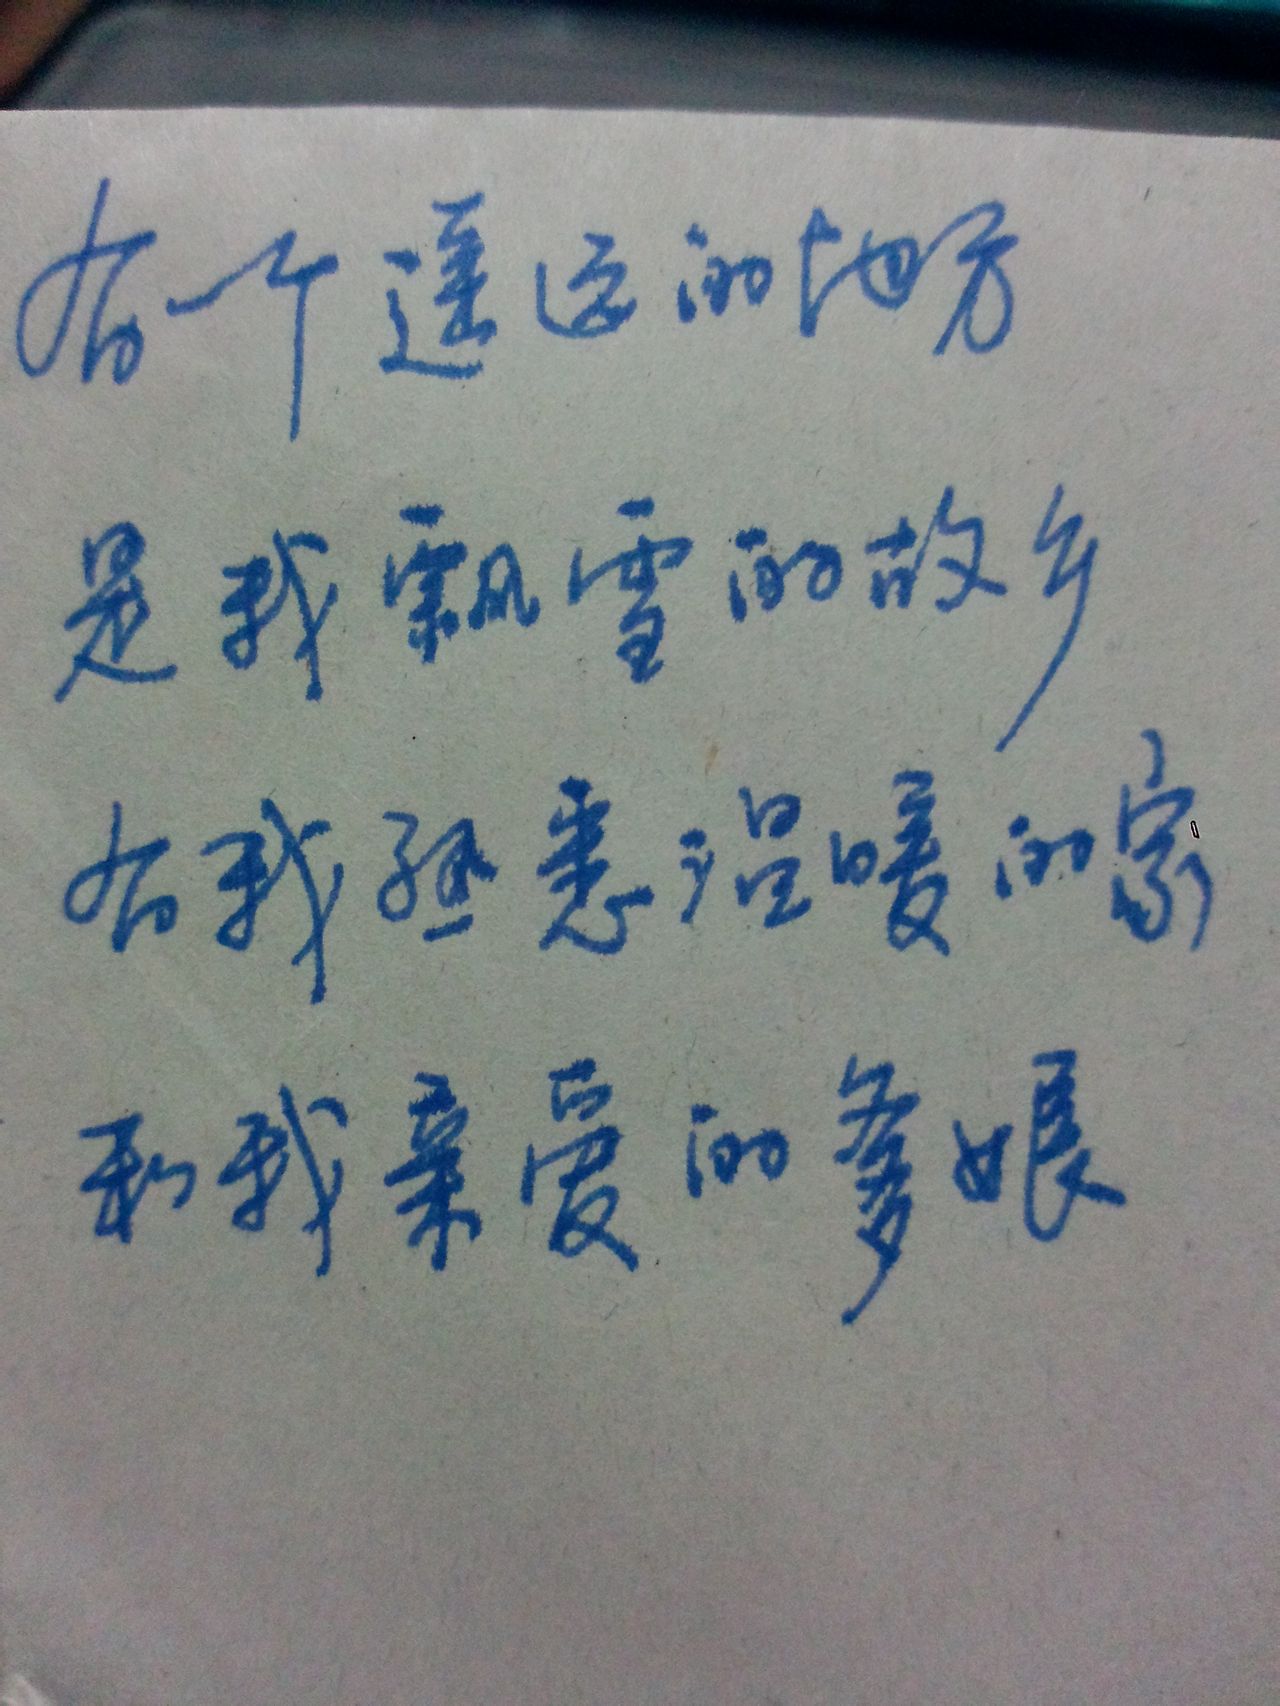 有个遥远的地方
是我飘雪的故乡
有我熟悉温暖的家
和我亲爱的爹娘